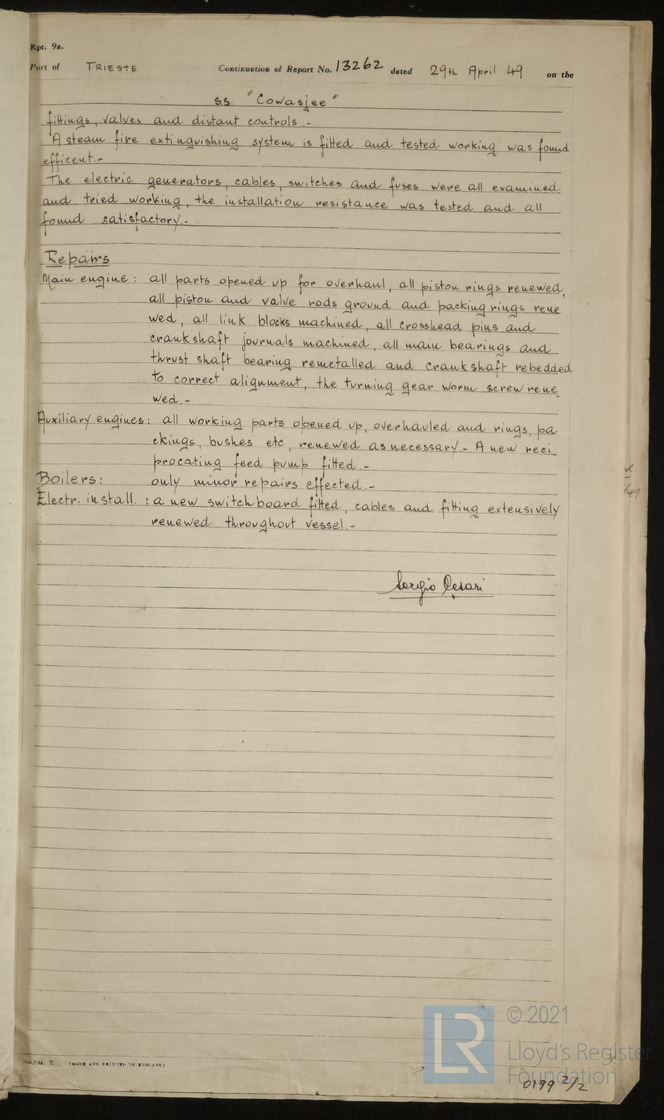 Rpt. 9a.
Port of TRIESTE Continuation of Report No. 13262 dated 29th April 49 on the
ss. "Cowasjee"
fittings, valves and distant controls.-
A steam fire extinguishing system is fitted and tested working was found
efficent.-
The electric generators, cables, switches and fuses were all examined
and tried working, the installation resistance was tested and all
found satisfactory.-
Repairs
Main engine: all parts opened up for overhaul, all piston rings renewed,
all piston and valve rods ground and packing rings rene
wed, all link blocks machined, all crosshead pins and
crankshaft journals machined, all main bearings and
thrust shaft bearing remetalled and crankshaft rebedded
to correct alignment, the turning gear worm screw rene
wed.-
Auxiliary engines: all working parts opened up, overhauled and rings, pa
ckings, bushes etc, renewed as necessary - A new reci
procating feed pump fitted.-
Boilers: only minor repairs effected.-
Electr. install.: a new switchboard fitted, cables and fitting extensively
renewed throughout vessel.-
Sergio Cesari
T. (MADE AND PRINTED IN ENGLAND)
LR
© 2021
Lloyd's Register
Foundation
0199 2/2